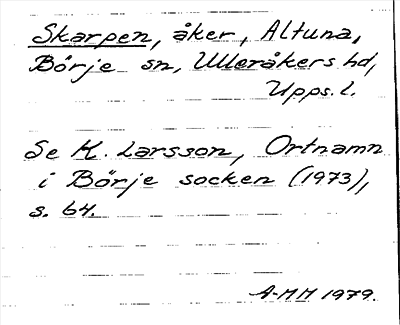 Skarpen, åker, Altuna,
Börje sn, Ulleråkers hd,
Upps. l.
Se K. Larsson, Ortnamn
i Börje socken (1973),
s. 64.
A-MH 1979.